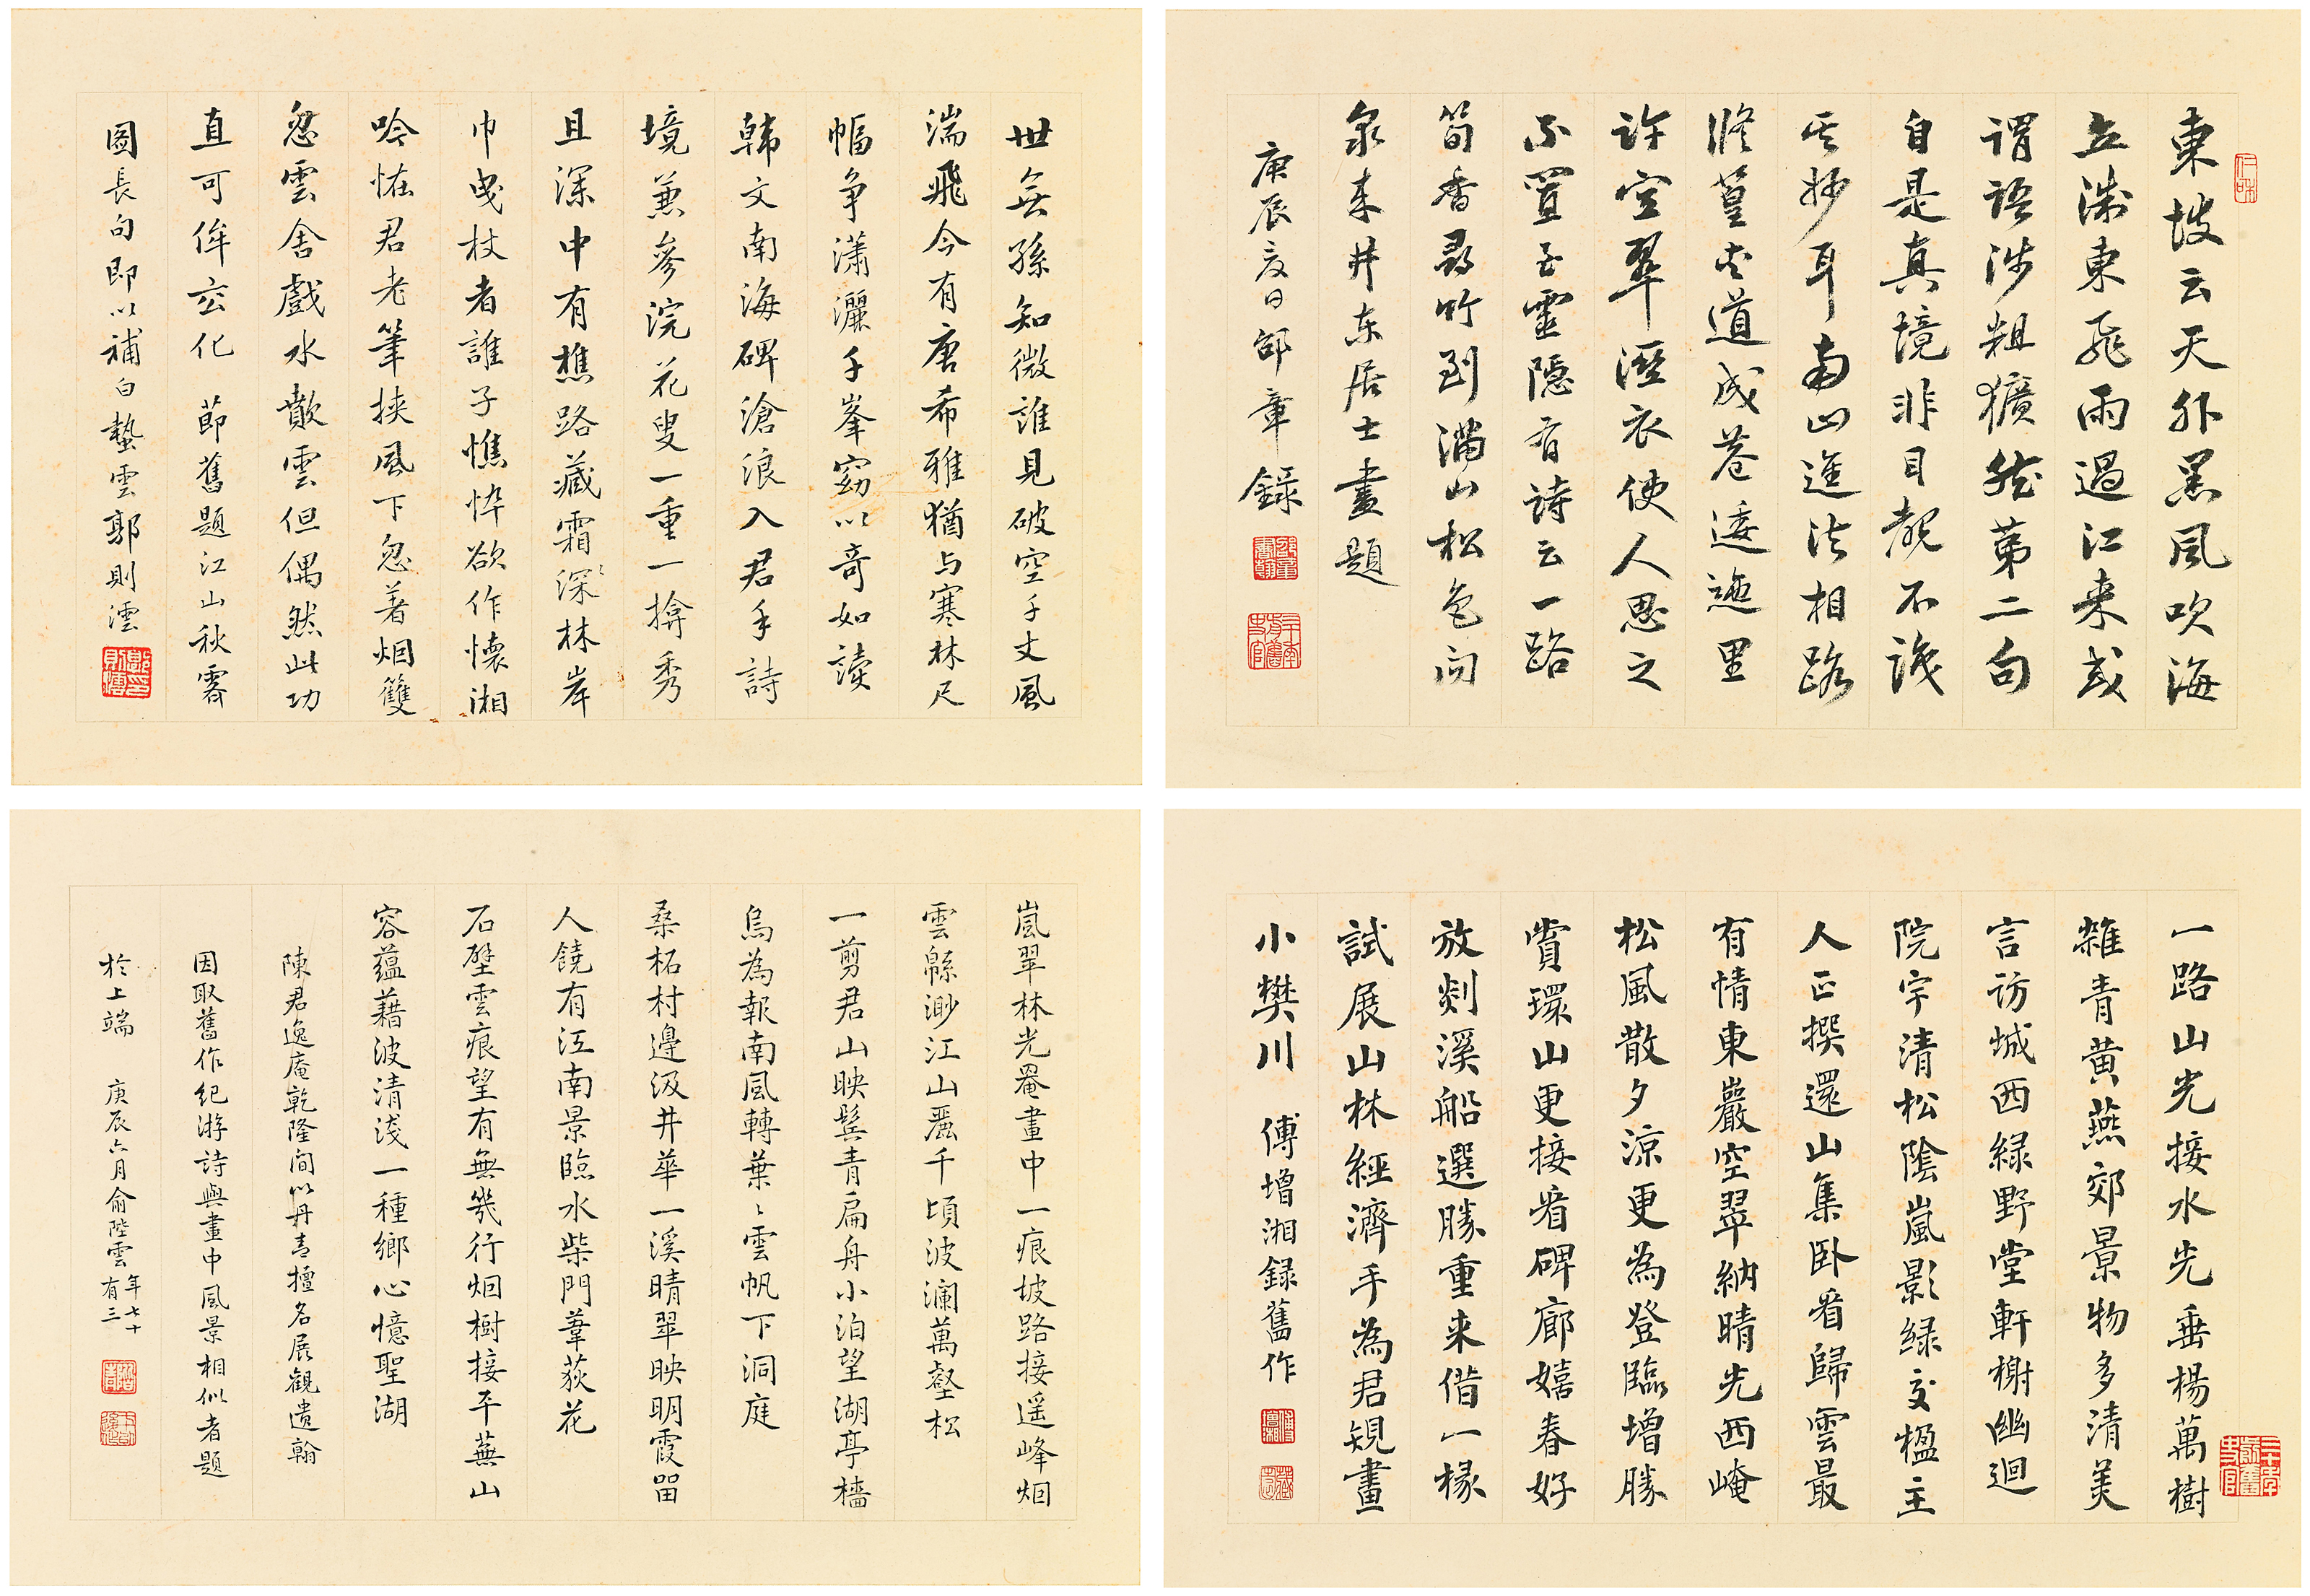 東坡云天外黑風吹海
立浙東飛雨過江来或
謂語涉粗獷然第二句
自是真境非目覩不識
其妙耳南山進法相路
脩篁夾道成巷逶迤里
許空翠溼衣使人思之
不置至靈隱有詩云一路
筍香尋竹到滿山松色向
泉来井东居士畫題
庚辰夏日邵章錄
世無孫知微誰見破空千丈風
湍飛今有唐希雅猶与寒林尺
幅争瀟灑千峯窈以奇如讀
韩文南海碑滄浪入君手詩
境兼參浣花叟一重一揜秀
且深中有樵路藏霜深林岸
巾曳杖者誰子憔悴欲作懷湘
吟恠君老筆挟風下忽著烟鬟
忽雲舍戲水散雲但偶然此功
直可侔玄化 節舊題江山秋霽
圖長句即以補白蟄雲郭則澐
一路山光接水光垂楊萬樹
雜青黄燕郊景物多清美
言访城西緑野堂軒榭幽迴
院宇清松陰嵐影緑交楹主
人正撰還山集卧看歸雲最
有情東巖空翠納晴光西崦
松風散夕涼更為登臨增勝
賞環山更接看碑廊嬉春好
放剡溪船選勝重来借一椽
試展山林經濟手為君規畫
小樊川 傅增湘録舊作
嵐翠林光罨畫中一痕坡路接遥峰烟
雲緜渺江山麗千頃波澜萬壑松
一剪君山映鬓青扁舟小泊望湖亭檣
烏為報南風轉葉〻雲帆下洞庭
桑柘村邊汲井華一溪晴翠映明霞畱
人饒有江南景臨水柴門葦荻花
石壁雲痕望有無幾行烟樹接平蕪山
容蕴藉波清淺一種鄉心憶聖湖
陳君逸庵乾隆間以丹青擅名展觀遺翰
因取舊作紀游詩與畫中風景相似者題
於上端 庚辰六月俞陛雲年七十有三